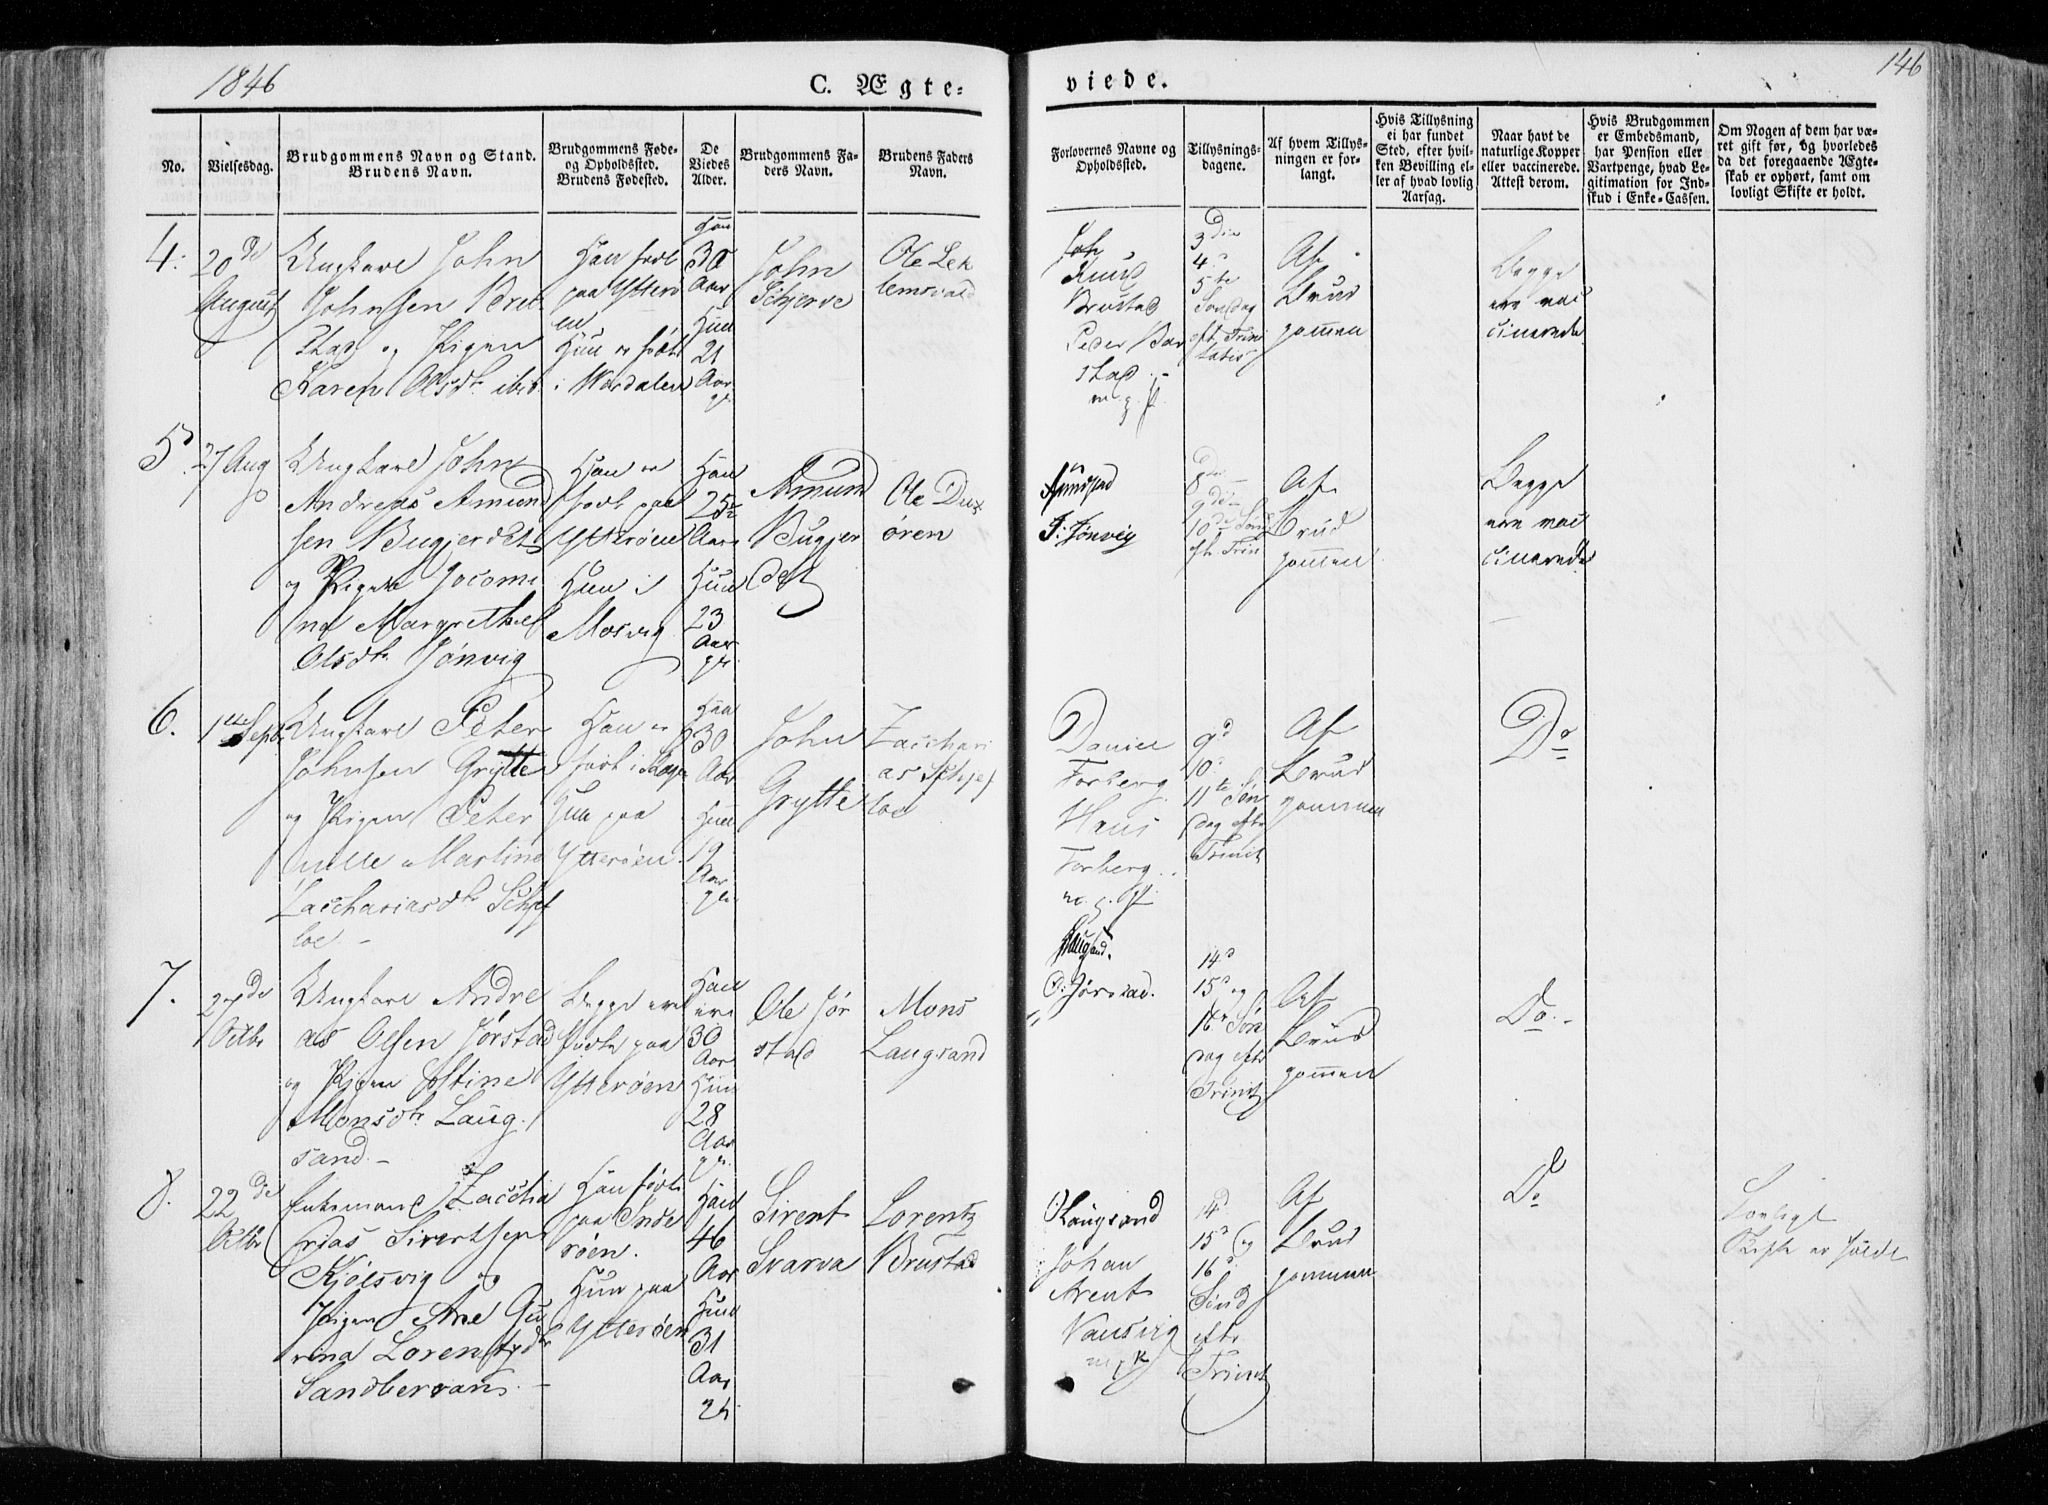 1846
C. Ægte-
viede.
146
No.
Vielsesdag.
Brudgommens Navn og Stand.
Brudens Navn.
Brudgommens Føde-
og Opholdssted.
Brudens Fødested.
De
Viedes
Alder.
Brudgommens Fa-
ders Navn.
Brudens Faders
Navn.
Forlovernes Navne og
Opholdssted.
Tillysnings-
dagene.
Af hvem Tillys-
ningen er for-
langt.
Hvis Tillysning
ei har fundet
Sted, efter hvil-
ken Bevilling el-
ler af hvad lovlig
Aarsag.
Naar havt de
naturlige Kopper
eller vaccinerede.
Attest derom.
Hvis Brudgommen
er Embedsmand,
har Pension eller
Vartpenge, hvad Le-
gitimation for Ind-
skud i Enke-Cassen.
Om Nogen af dem har væ-
ret gift før, og hvorledes
da det foregaaende Ægte-
skab er ophørt, samt om
lovligt Skifte er holdt.
4.
20de
August
Ungkarl John
Johnsen Bru-
stad og Pigen
Karen Olsdtr ibid.
Han født
paa Ytterø
en
Hun er født
i Værdalen
Han
30
Aar
Hun
21
Aar
gl.
John
Schjerve
Ole Lek
lemsvald
Knud
Brustad
Peder Bar
stad
m. p. P.
3die
4.
5te
Søndag
eft. Trini
tatis
Af
Brud
gommen
Begge
ere vac
cinerede
5.
27 Aug
Ungkarl John
Andreas Amund
sen Bugjerdet
og Pigen Jocomi
na Margrethe
Olsdtr Jønvig
Han er
født paa
Ytterøen
Hun i
Mosvig
Han
25½
Aar
Hun
23
Aar
gl.
Amund
Bugjer
det
Ole Dux
ören
J. Jønvig
8de
9de
10de Sønd
eft. Trin
Af
Brud
gommen
Begge
ere vac
cinerede
6.
1ste Septbr
Ungkarl Peter
Johnsen Grytte
og Pigen Peter
nille Martine
Zacchariasdtr Schjef
loe
Han er
født i Skogn
Hun paa
Ytterøen
Han
30
Aar
Hun
19
Aar
gl.
John
Grytte
Zacchari
as Schjef
loe
Daniel
Forberg
Hans
Forberg
m. p. P.
9d
10.
11te Søn
dag eftr
Trinit
Af
Brud
gommen
Do
7.
27de
Octbr
Ungkarl Andre
as Olsen Jørstad
og Pigen Oltine
Monsdtr Laug
sand
Begge ere
fødte paa
Ytterøen
Han
30
Aar
Hun
28
Aar
gl.
Ole Jør
stad
Mons
Laugsand
Laugsand.
O. Jørstad.
14d
15d og
16de Søn
dag eftr
Trinit
Af
Brud
gommen
Do
8.
22de
Octbr
Enkemand Zaccha
rias Sivertsen
Kjølsvig og
Pigen Ane Gu
rina Lorentzdtr
Han født
paa Inde
røen.
Hun paa
Ytterøen
Han
46
Aar
Hun
31
Aar
gl.
Sivert
Svarva
Lorentz
Brustad
Laugsand
Johan
Arent
Vansvig
14d
15d og
16d
Sønd
eftr
Trinit
Af
Brud
gommen
Do
Lovligt
Skifte er holdt